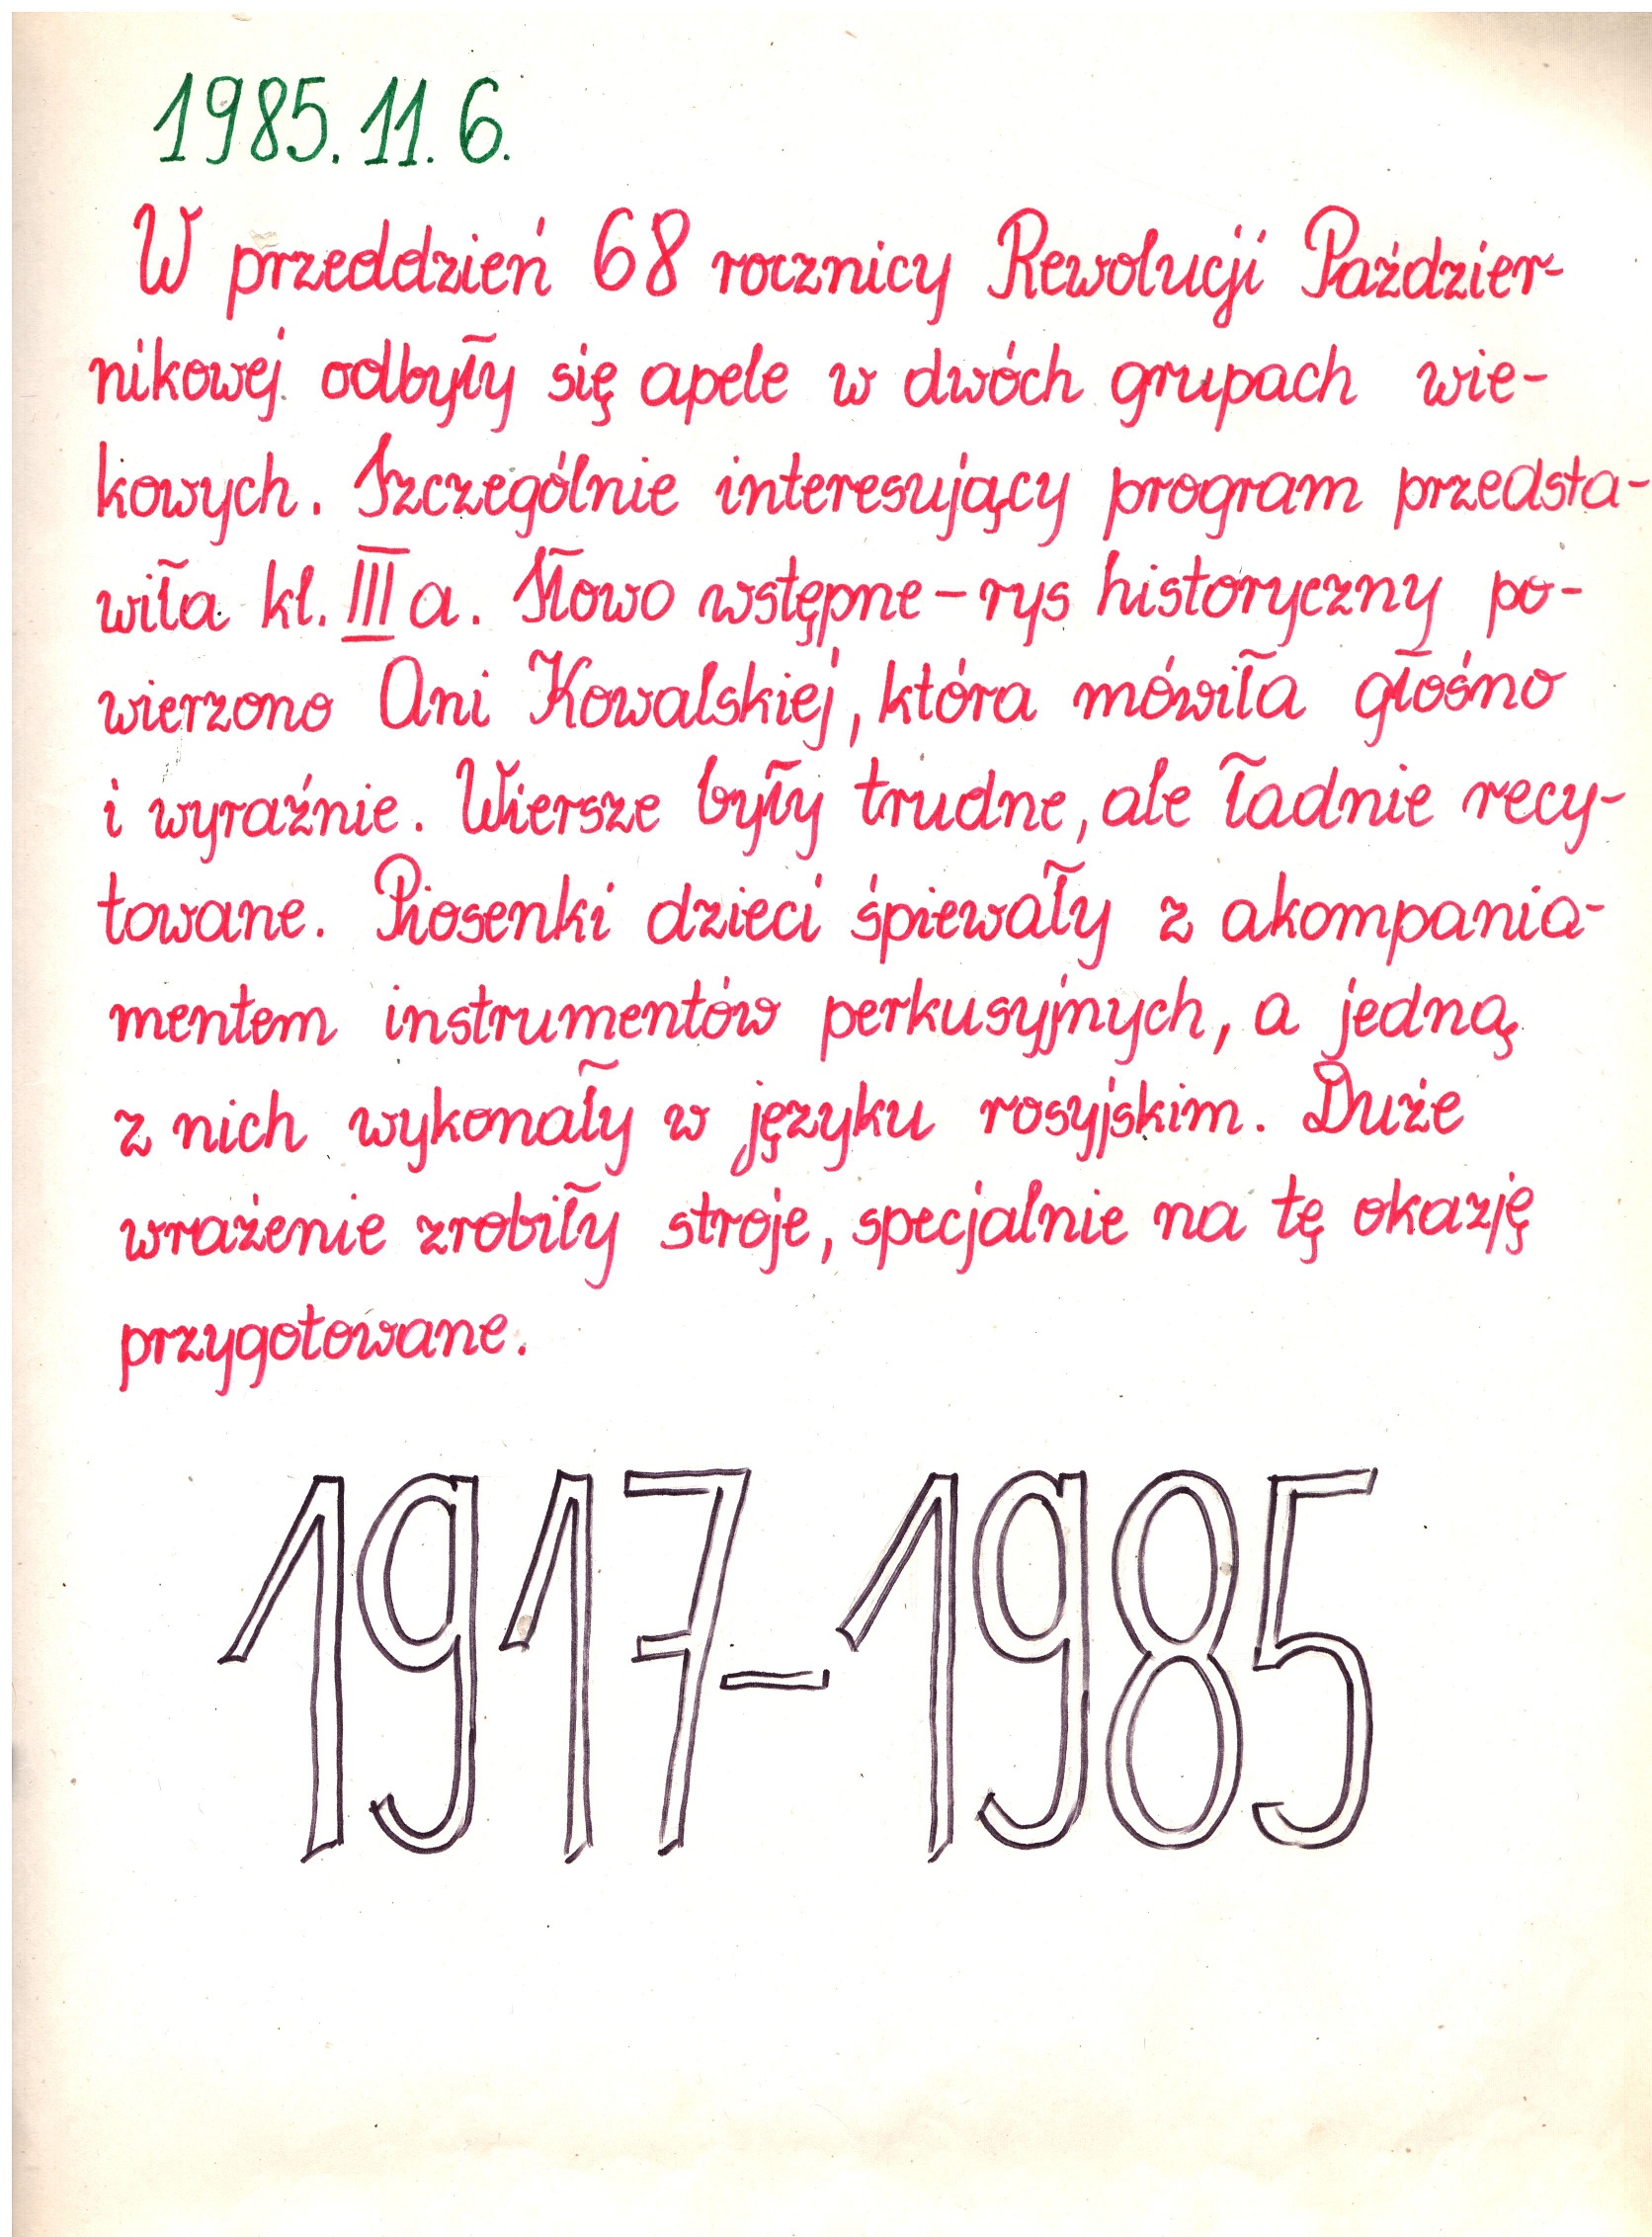 1985.11.6.
W przeddzień 68 rocznicy Rewolucji Paździer-
nikowej odbyły się apele w dwóch grupach wie-
kowych. Szczególnie interesujący program przedsta-
wiła kl. III a. Słowo wstępne - rys historyczny po-
wierzono Ani Kowalskiej, która mówiła głośno
i wyraźnie. Wiersze były trudne, ale ładnie recy-
towane. Piosenki dzieci śpiewały z akompania-
mentem instrumentów perkusyjnych, a jedną
z nich wykonały w języku rosyjskim. Duże
wrażenie zrobiły stroje, specjalnie na tę okazję
przygotowane.
1917-1985